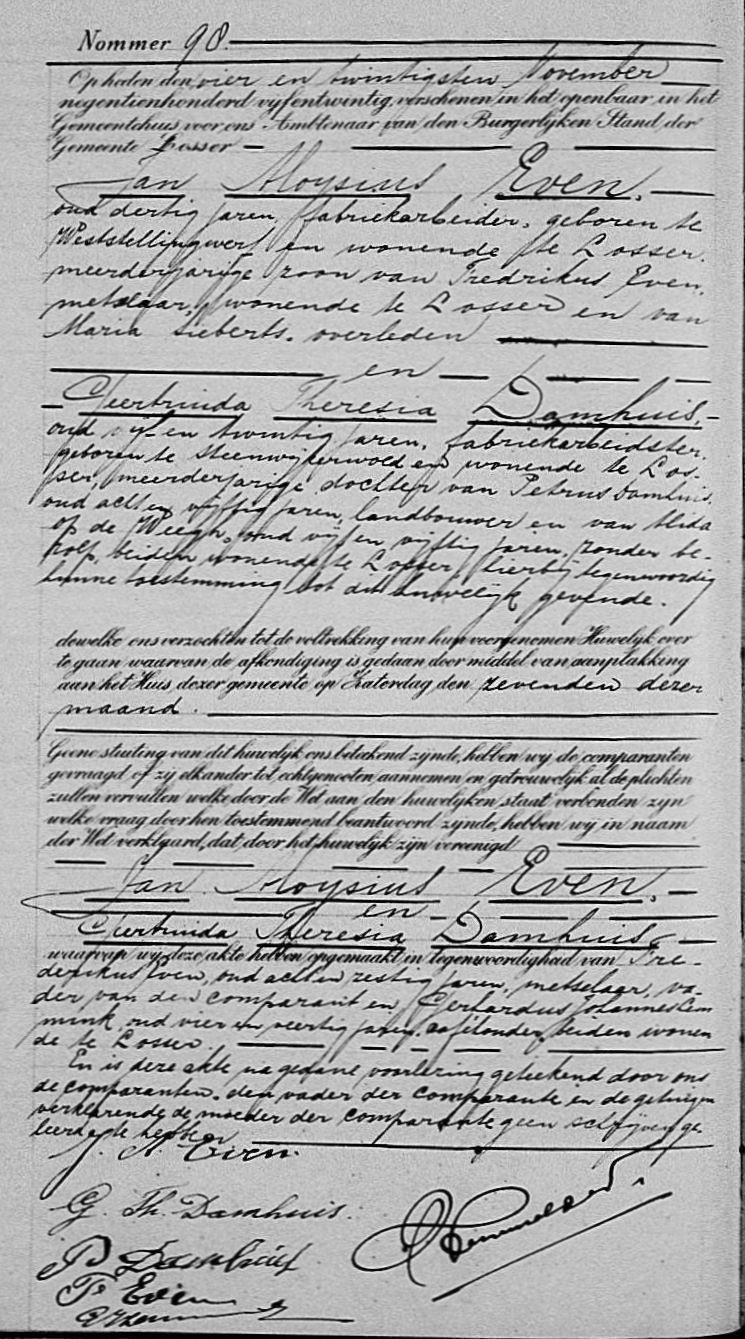 Nommer 98.
Op heden den vier en twintigsten November
negentienhonderd vijfentwintig, verschenen in het openbaar in het
Gemeentehuis voor ons Ambtenaar van den Burgerlijken Stand der
Gemeente Losser
Jan Aloysius Even,
oud dertig jaren, fabriekarbeider, geboren te
Weststellingwerf en wonende te Losser,
meerderjarige zoon van Fredrikus Even,
metselaar, wonende te Losser en van
Maria Sieberts, overleden
en
Geertruida Theresia Damhuis,
oud vijf en twintig jaren, fabriekarbeidster,
geboren te Steenwijkerwold en wonende te Los-
ser, meerderjarige dochter van Petrus Damhuis,
oud acht en vijftig jaren, landbouwer en van Alida
op de Weegh, oud vijf en vijftig jaren, zonder be-
roep, beiden wonende te Losser, hierbij tegenwoordig
hunne toestemming tot dit huwelijk gevende.
dewelke ons verzochten tot de voltrekking van hun voorgenomen Huwelijk over
te gaan waarvan de afkondiging is gedaan door middel van aanplakking
aan het Huis dezer gemeente op Zaterdag den zevenden dezer
maand.
Geene stuiting van dit huwelijk ons bekend zijnde, hebben wij de comparanten
gevraagd of zij elkander tot echtgenooten aannemen en getrouwelijk al de plichten
zullen vervullen welke door de Wet aan den huwelijken staat verbonden zijn
welke vraag door hen toestemmend beantwoord zijnde, hebben wij in naam
der Wet verklaard, dat door het huwelijk zijn vereenigd
Jan Aloysius Even,
en
Geertruida Theresia Damhuis,
waarvan wij deze akte hebben opgemaakt in tegenwoordigheid van Fre-
derikus Even, oud acht en zestig jaren, metselaar, va-
der van den comparant en Gerhardus Johannes
mink, oud vier en veertig jaren, beiden wonen
de te Losser.
En is deze akte na gedane voorlezing geteekend door ons
de comparanten, den vader der comparante en de getuigen
verklarende de moeder der comparante geen schrijven ge
leerd te hebben
J. A. Even.
G. Th. Damhuis.
P Damhuis
F Even